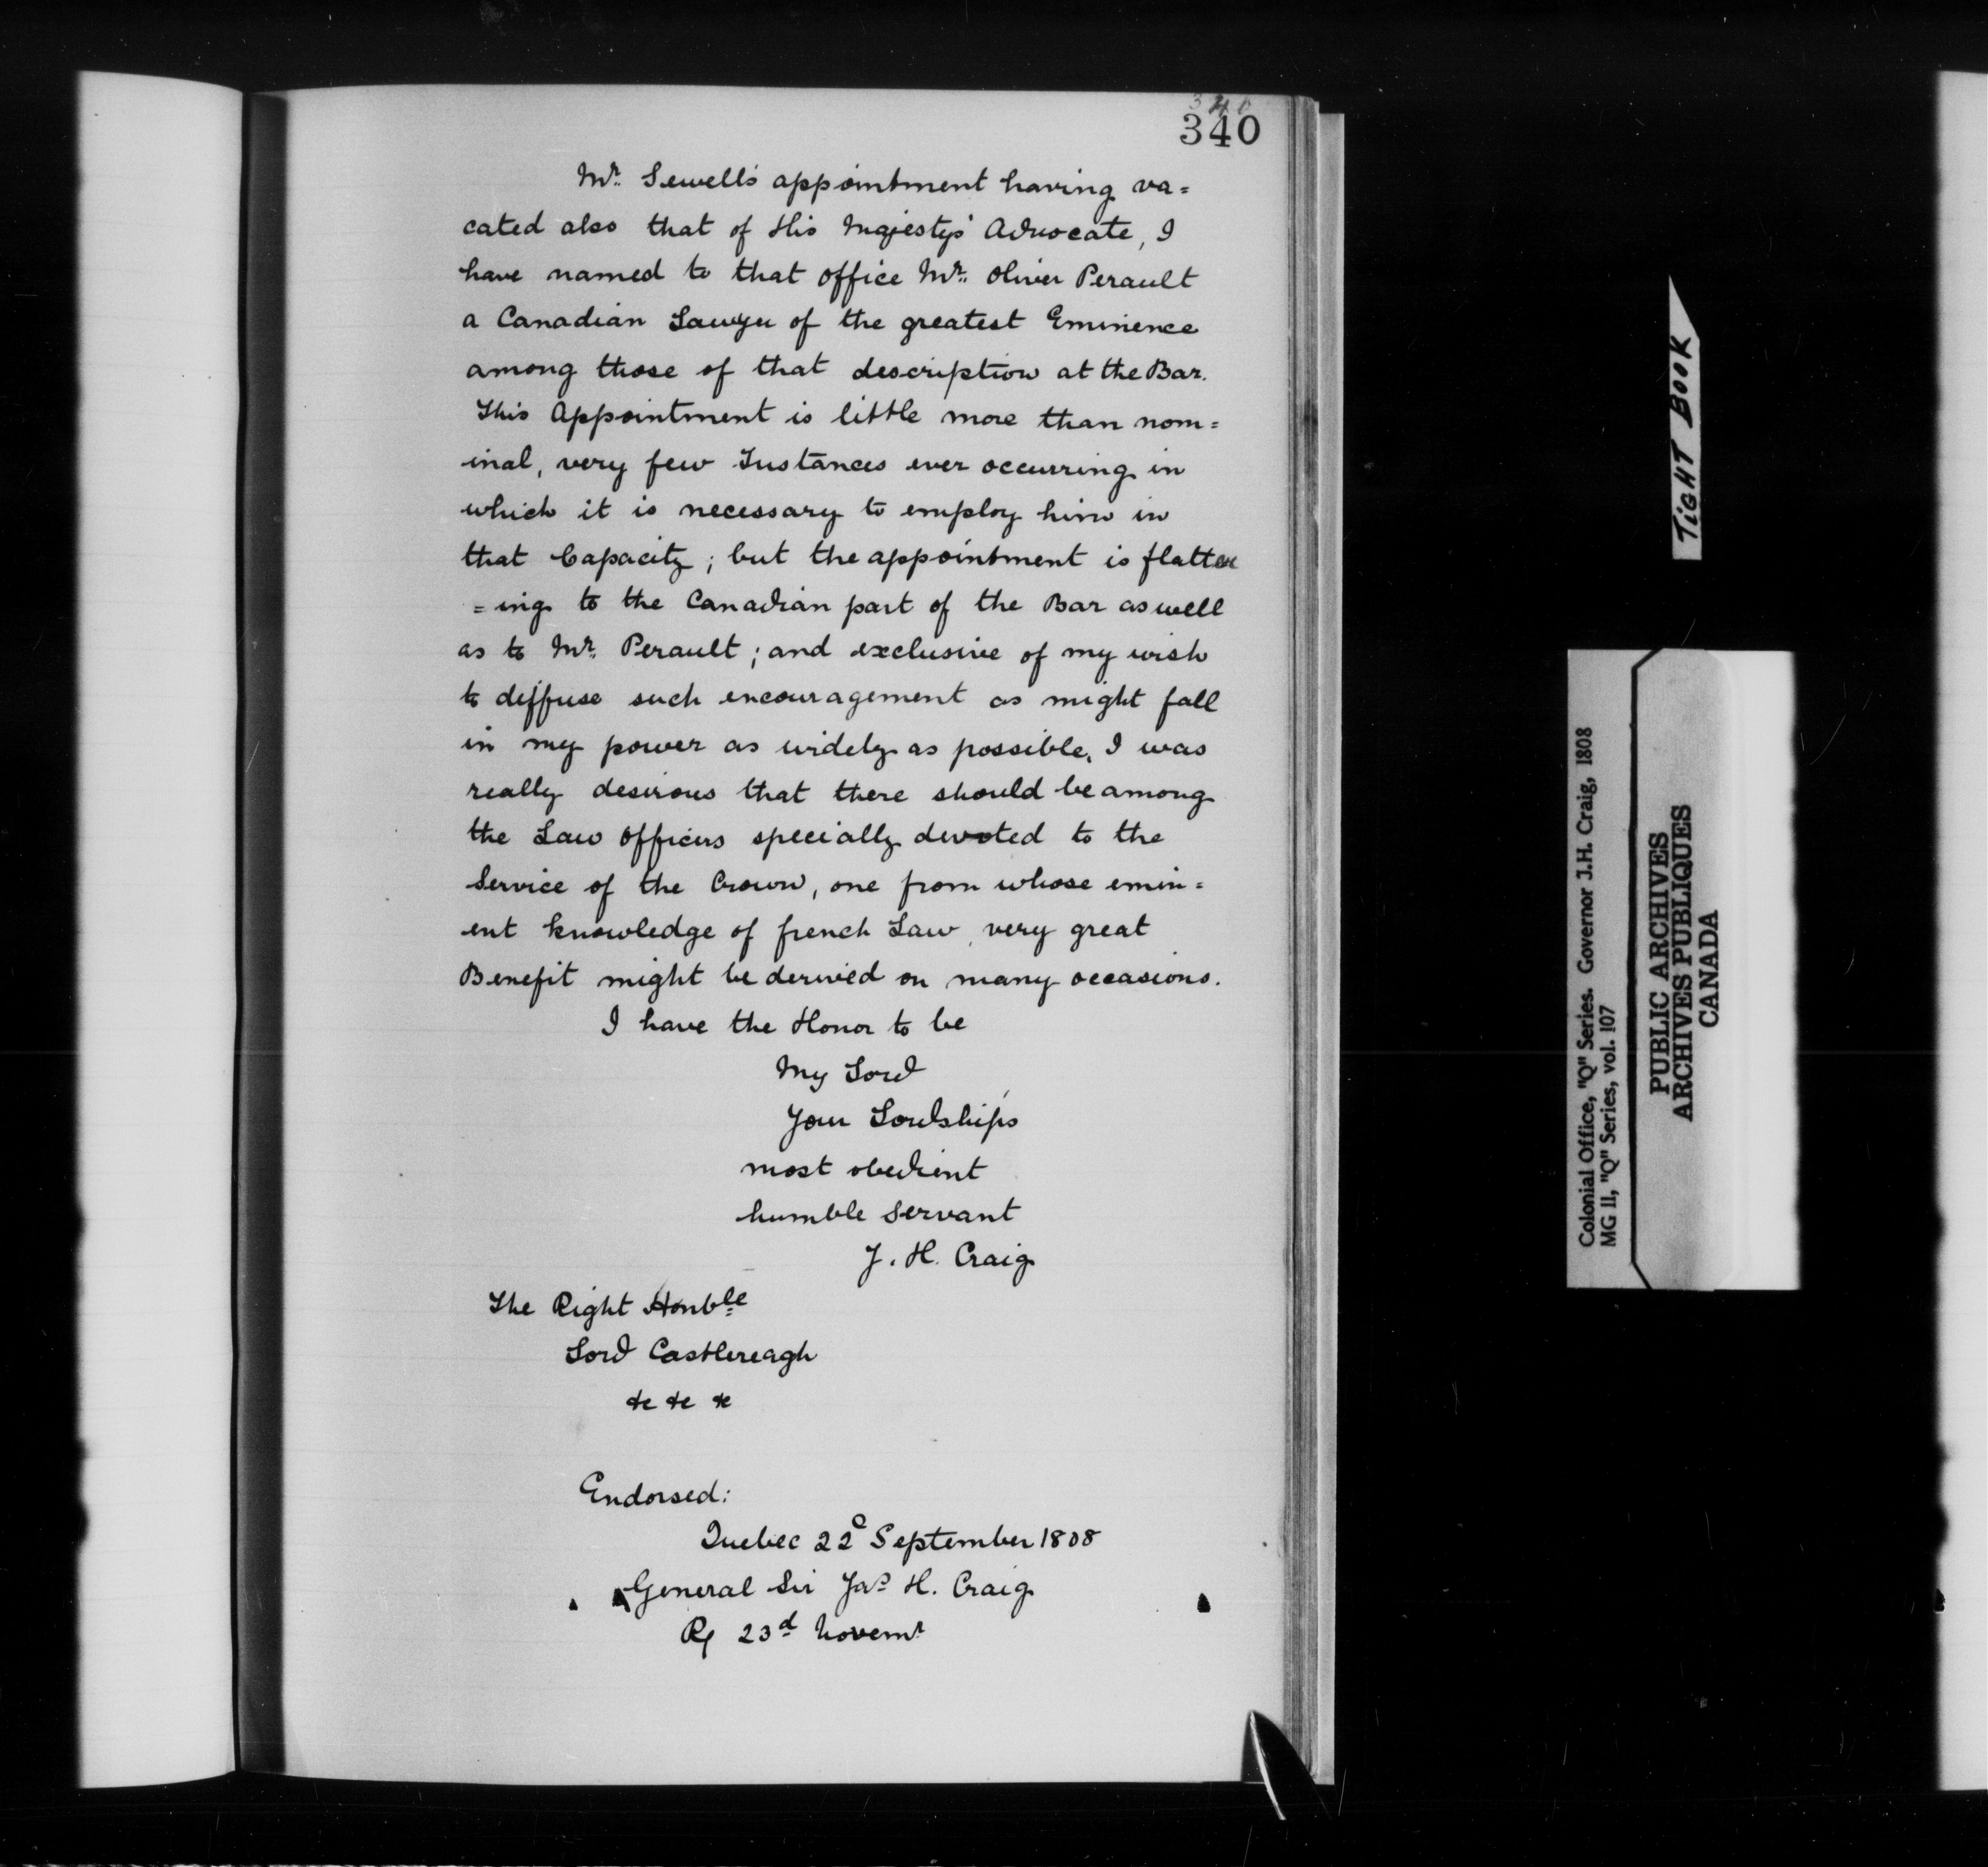 340
340
Mr. Sewell's appointment having va=
cated also that of His Majesty's Advocate, I
have named to that office Mr. Oliver Perault
a Canadian Lawyer of the greatest Eminence
among those of that description at the Bar.
This Appointment is little more than nom=
inal, very few Instances ever occurring in
which it is necessary to employ him in
that Capacity; but the appointment is flatter
=ing to the Canadian part of the Bar as well
as to Mr. Perault; and exclusive of my wish
to diffuse such encouragement as might fall
in my power as widely as possible, I was
really desirous that there should be among
the Law Officers specially devoted to the
Service of the Crown, one from whose emin=
ent knowledge of french Law, very great
Benefit might be derived on many occasions.
I have the Honor to be
My Lord
Your Lordship's
most obedient
humble Servant
J. H. Craig
The Right Honble
Lord Castlereagh
&c &c &c
Endorsed:
Quebec 22d September 1808
General Sir Jas H. Craig
R 23d Novemr
TiGHT BOOK
Colonial Office, "Q" Series. Governor J.H. Craig, 1808
MG 11, "Q" Series, vol. 107
PUBLIC ARCHIVES
ARCHIVES PUBLIQUES
CANADA